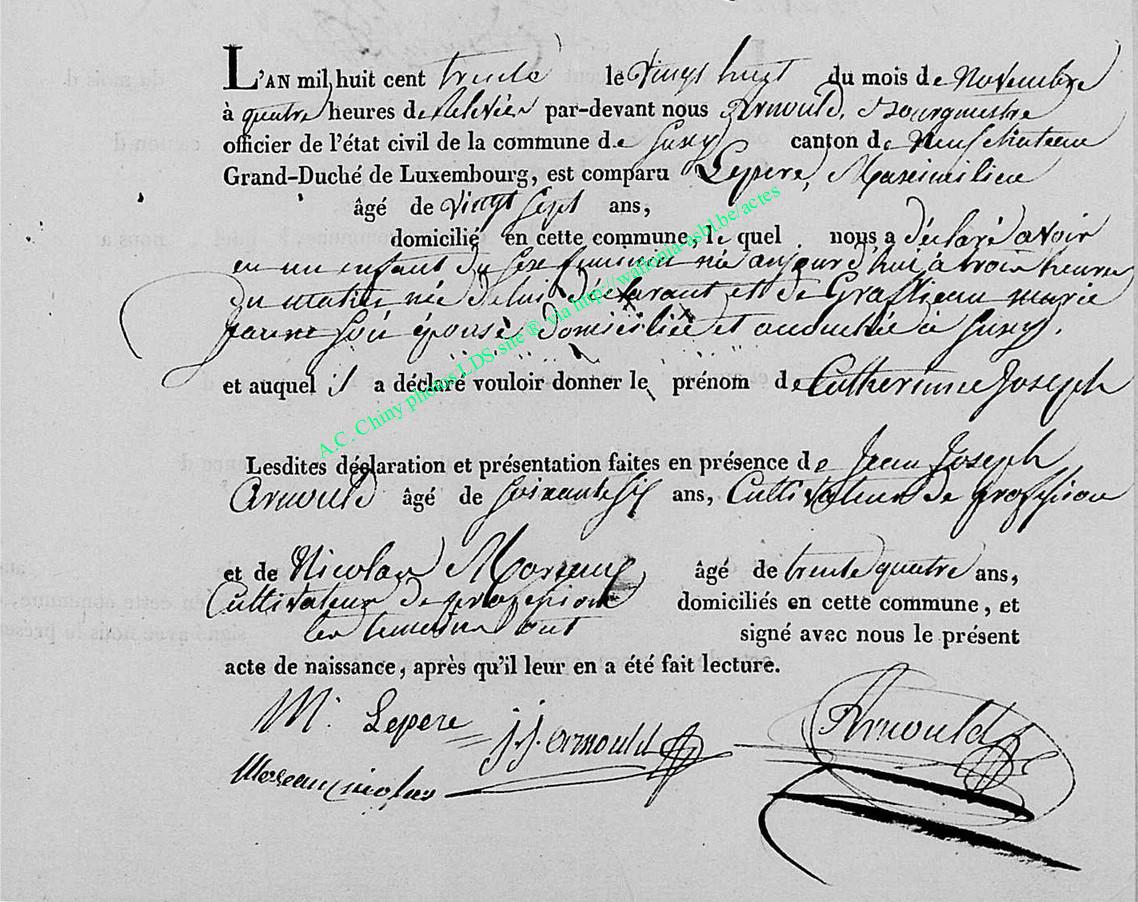 L'AN mil huit cent trente le vingt huyt du mois de Novembre
à quatre heures de relevée par-devant nous Arnould, Bourgmestre
officier de l'état civil de la commune de Suxy canton de Neufchateau
Grand-Duché de Luxembourg, est comparu Lepere, Maximilien
âgé de vingt sept ans,
domicilié en cette commune, le quel nous a déclaré avoir
eu un enfant du sexe feminin née aujourd'hui à trois heures
du matin née de lui déclarant et de Grasieau marie
jeanne son épouse domiciliée et accouchée à Suxy.
et auquel il a déclaré vouloir donner le prénom de Catherinne Joseph
Lesdites déclaration et présentation faites en présence de Jean Joseph
Arnould âgé de soixante six ans, Cultivateur de profession
et de Nicolas Moreau, âgé de trente quatre ans,
Cultivateur de profession domiciliés en cette commune, et
les temoins ont signé avec nous le présent
acte de naissance, après qu'il leur en a été fait lecture.
M. Lepere j.j. arnould Arnould
Moreau nicolas
A.C. Chiny photos LDS site ® via http://wallonia-asbl.be/actes